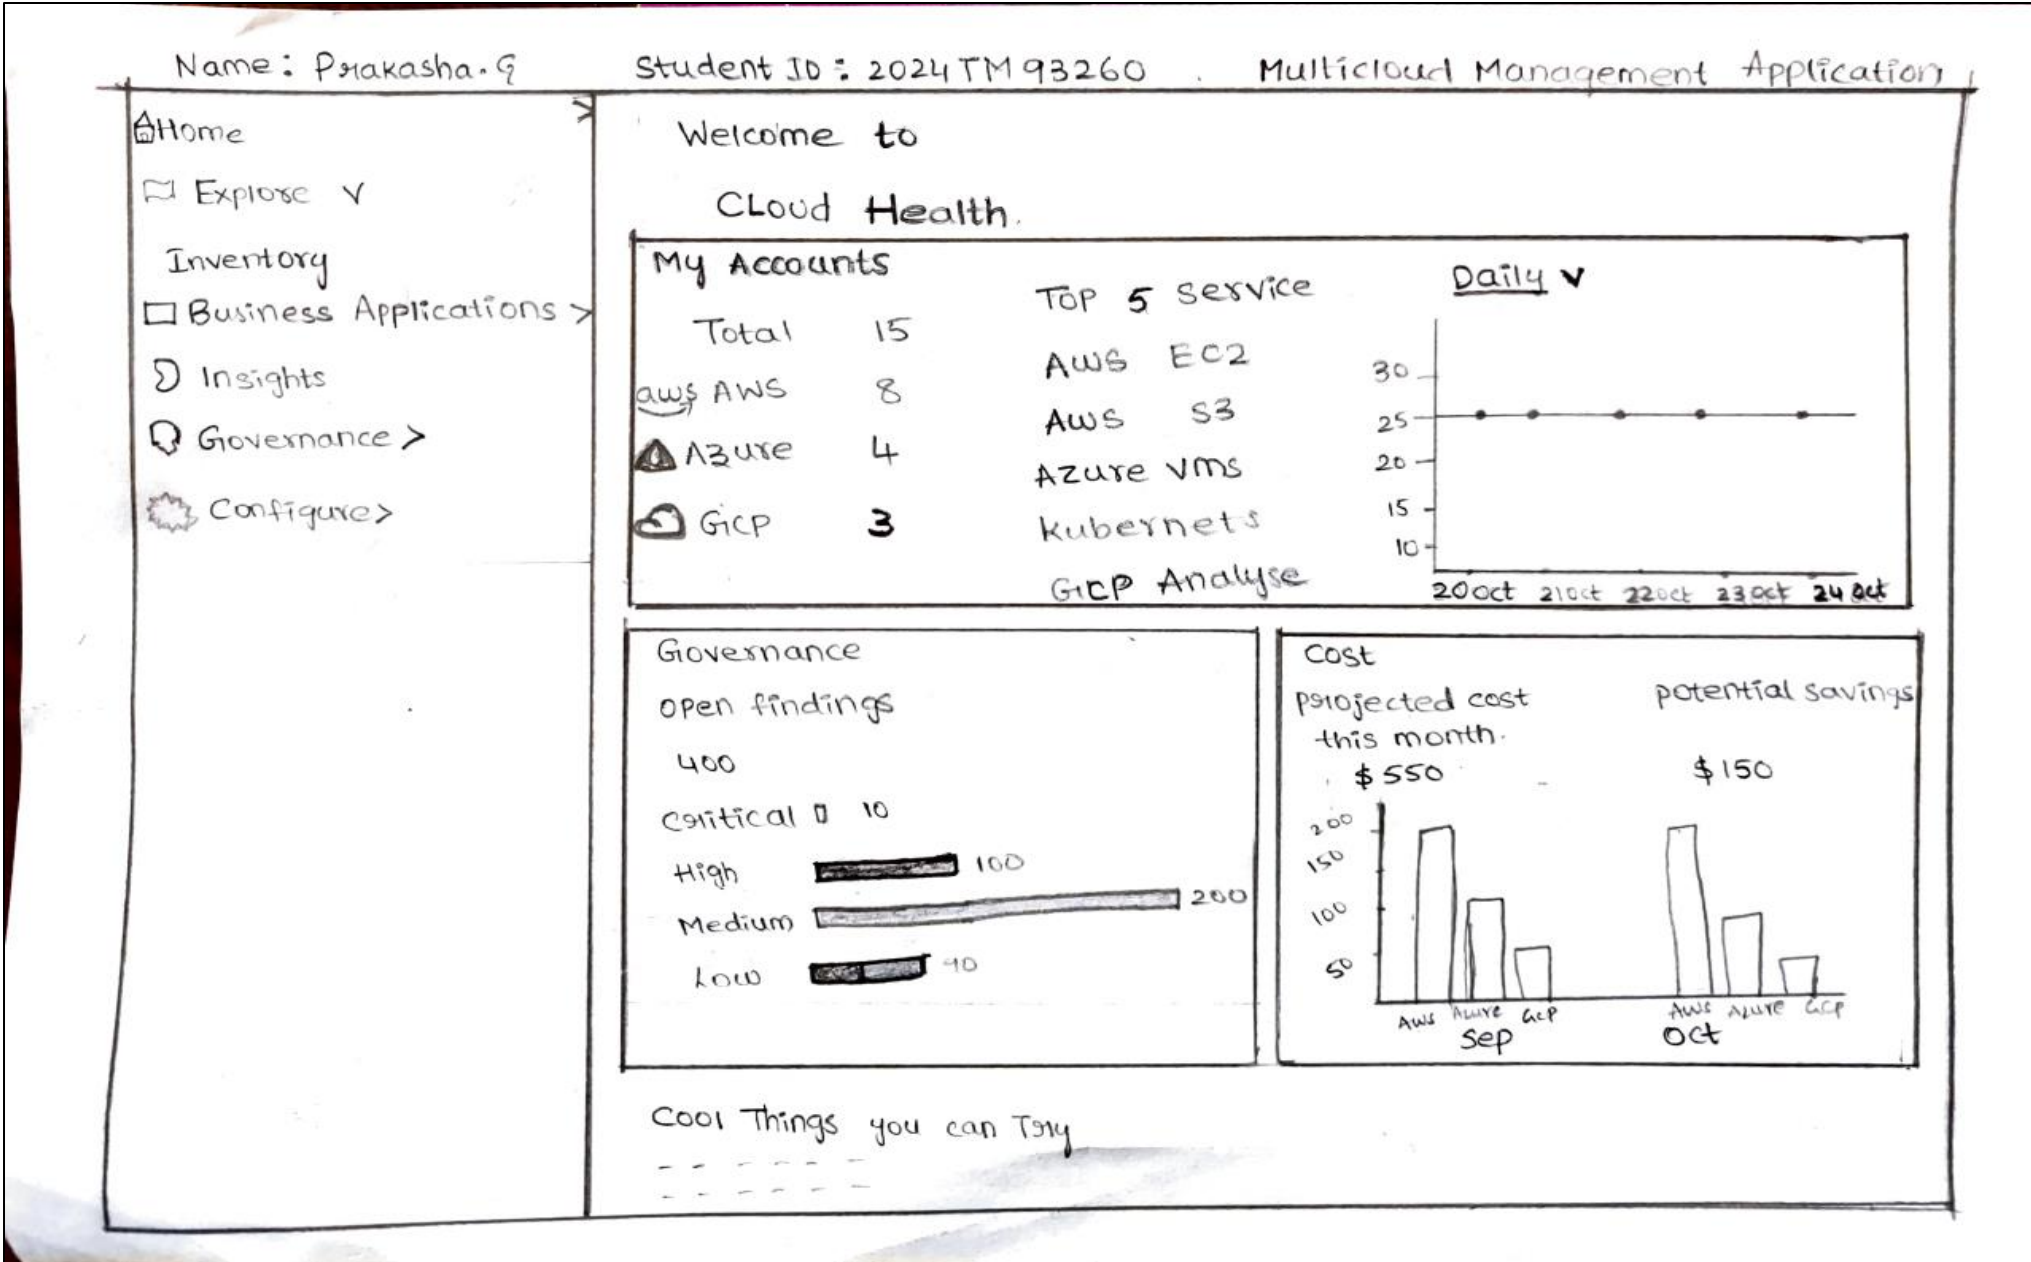 Name: Prakasha.G Student ID: 2024TM93260 Multicloud Management Application
>
Home
Explore v
Inventory
Business Applications >
Insights
Governance >
Configure >
Welcome to
CLoud Health.
My Accounts
Total 15
aws AWS 8
Azure 4
GCP 3
TOP 5 service
AWS EC2
AWS S3
AZure VMS
kubernets
GCP Analyse
Daily v
30
25
20
15
10
20 Oct 21 Oct 22 Oct 23 Oct 24 Oct
Governance
open findings
400
Critical 10
High 100
Medium 200
Low 90
Cost
projected cost
this month.
$550
potential savings
$150
200
150
100
50
AWS Azure GCP
Sep
AWS Azure GCP
Oct
Cool Things you can Try